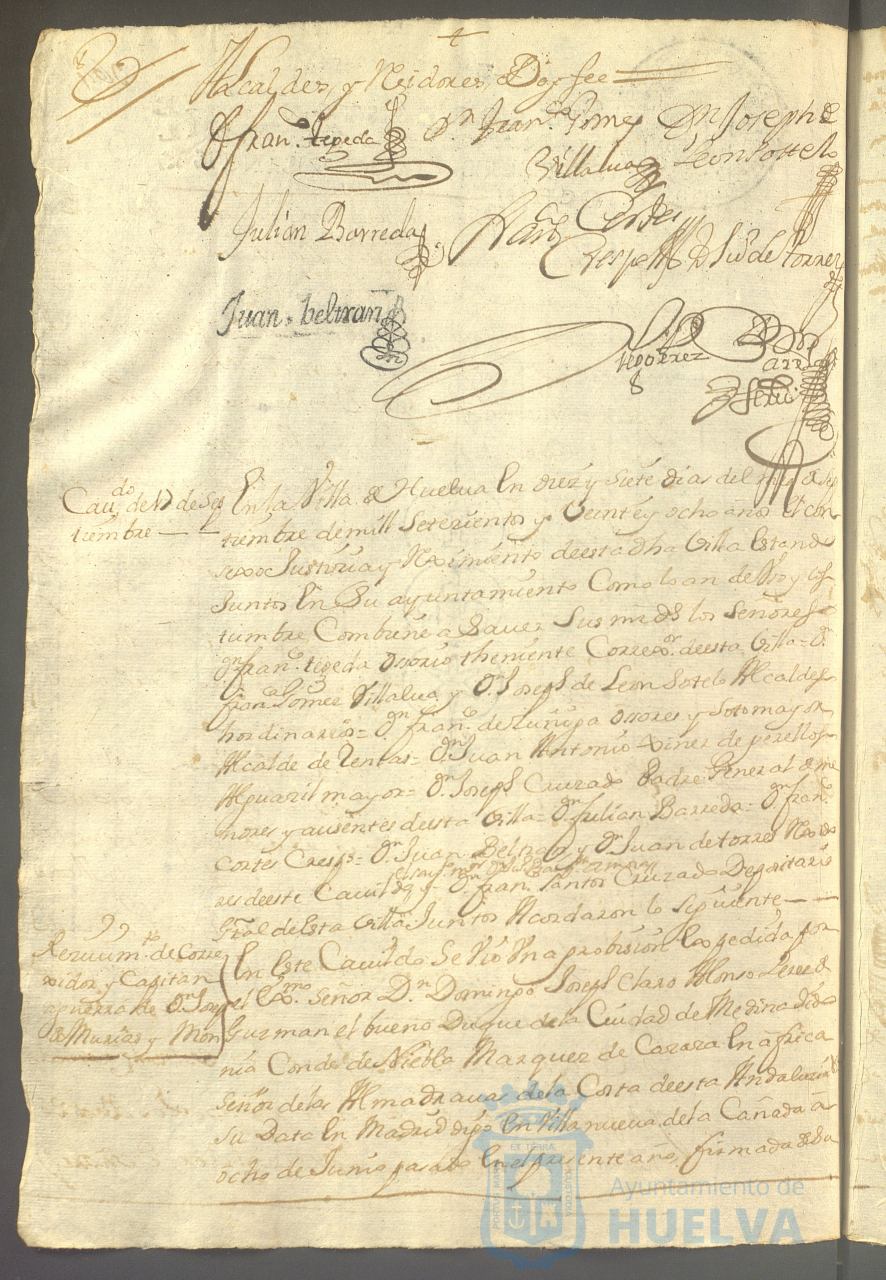 Alcaldes, y Rejidores, Doyfee
Fran.co tepeda Dn Fran.co Gomez Dn Joseph de
Villalua Leon Sottelo
Julian Barreda Fran.co Cortes
Crespo D Jus de torres
Juan. beltran
Cau.do de 17 de Sep
tiembre
En la Villa de Huelua En diez y siete dias del mes de Sep
tiembre de mill Setezientos y Veinte y ocho años el con
sexo Justizia y Reximiento de esta dha Villa Estando
Juntos En Su ayuntamiento Como lo an de Vso y cos
tumbre Combiene a Sauer Sus mrds los Señores
Dn fran.co tepeda Osorio theniente Correxor de esta Villa= Dn
fran.co Gomez Villalua y Dn Joseph de Leon Sotelo Alcaldes
hordinarios= Dn fran.co de Zuñiga Osores y Sotomayor
Alcalde de Rentas= Dn Juan Antonio Xinez de perellos
Alguazil mayor= Dn Joseph Cruzado Padre General de me
nores y ausentes de esta Villa= Dn Julian Barreda= Dn fran.co
Cortes Crespo= Dn Juan Beltran y Dn Juan de torres Rexido
res de este Cauildo y Dn fran.co Santos Cruzado Depositario
Gral de Esta Villa Juntos Acordaron lo Siguiente
Rezuim.to de Corre
xidor y Capitan
aguerra de Dn Joseph
de Murias y Mon
En Este Cauildo Se Vio Vna probision Expedida por
el Exmo Señor Dn Domingo Joseph Claro Alonso Perez de
Guzman el bueno Duque de la Ciudad de Medina Sido
nia Conde de Niebla Marquez de Cazaza En africa
Señor de las Almadrauas de la Costa de esta Andaluzia
Su Data En Madrid digo En Villanueva de la Cañada a
ocho de Junio pasado En el presente año, firmada de Su
Ayuntamiento de
HUELVA